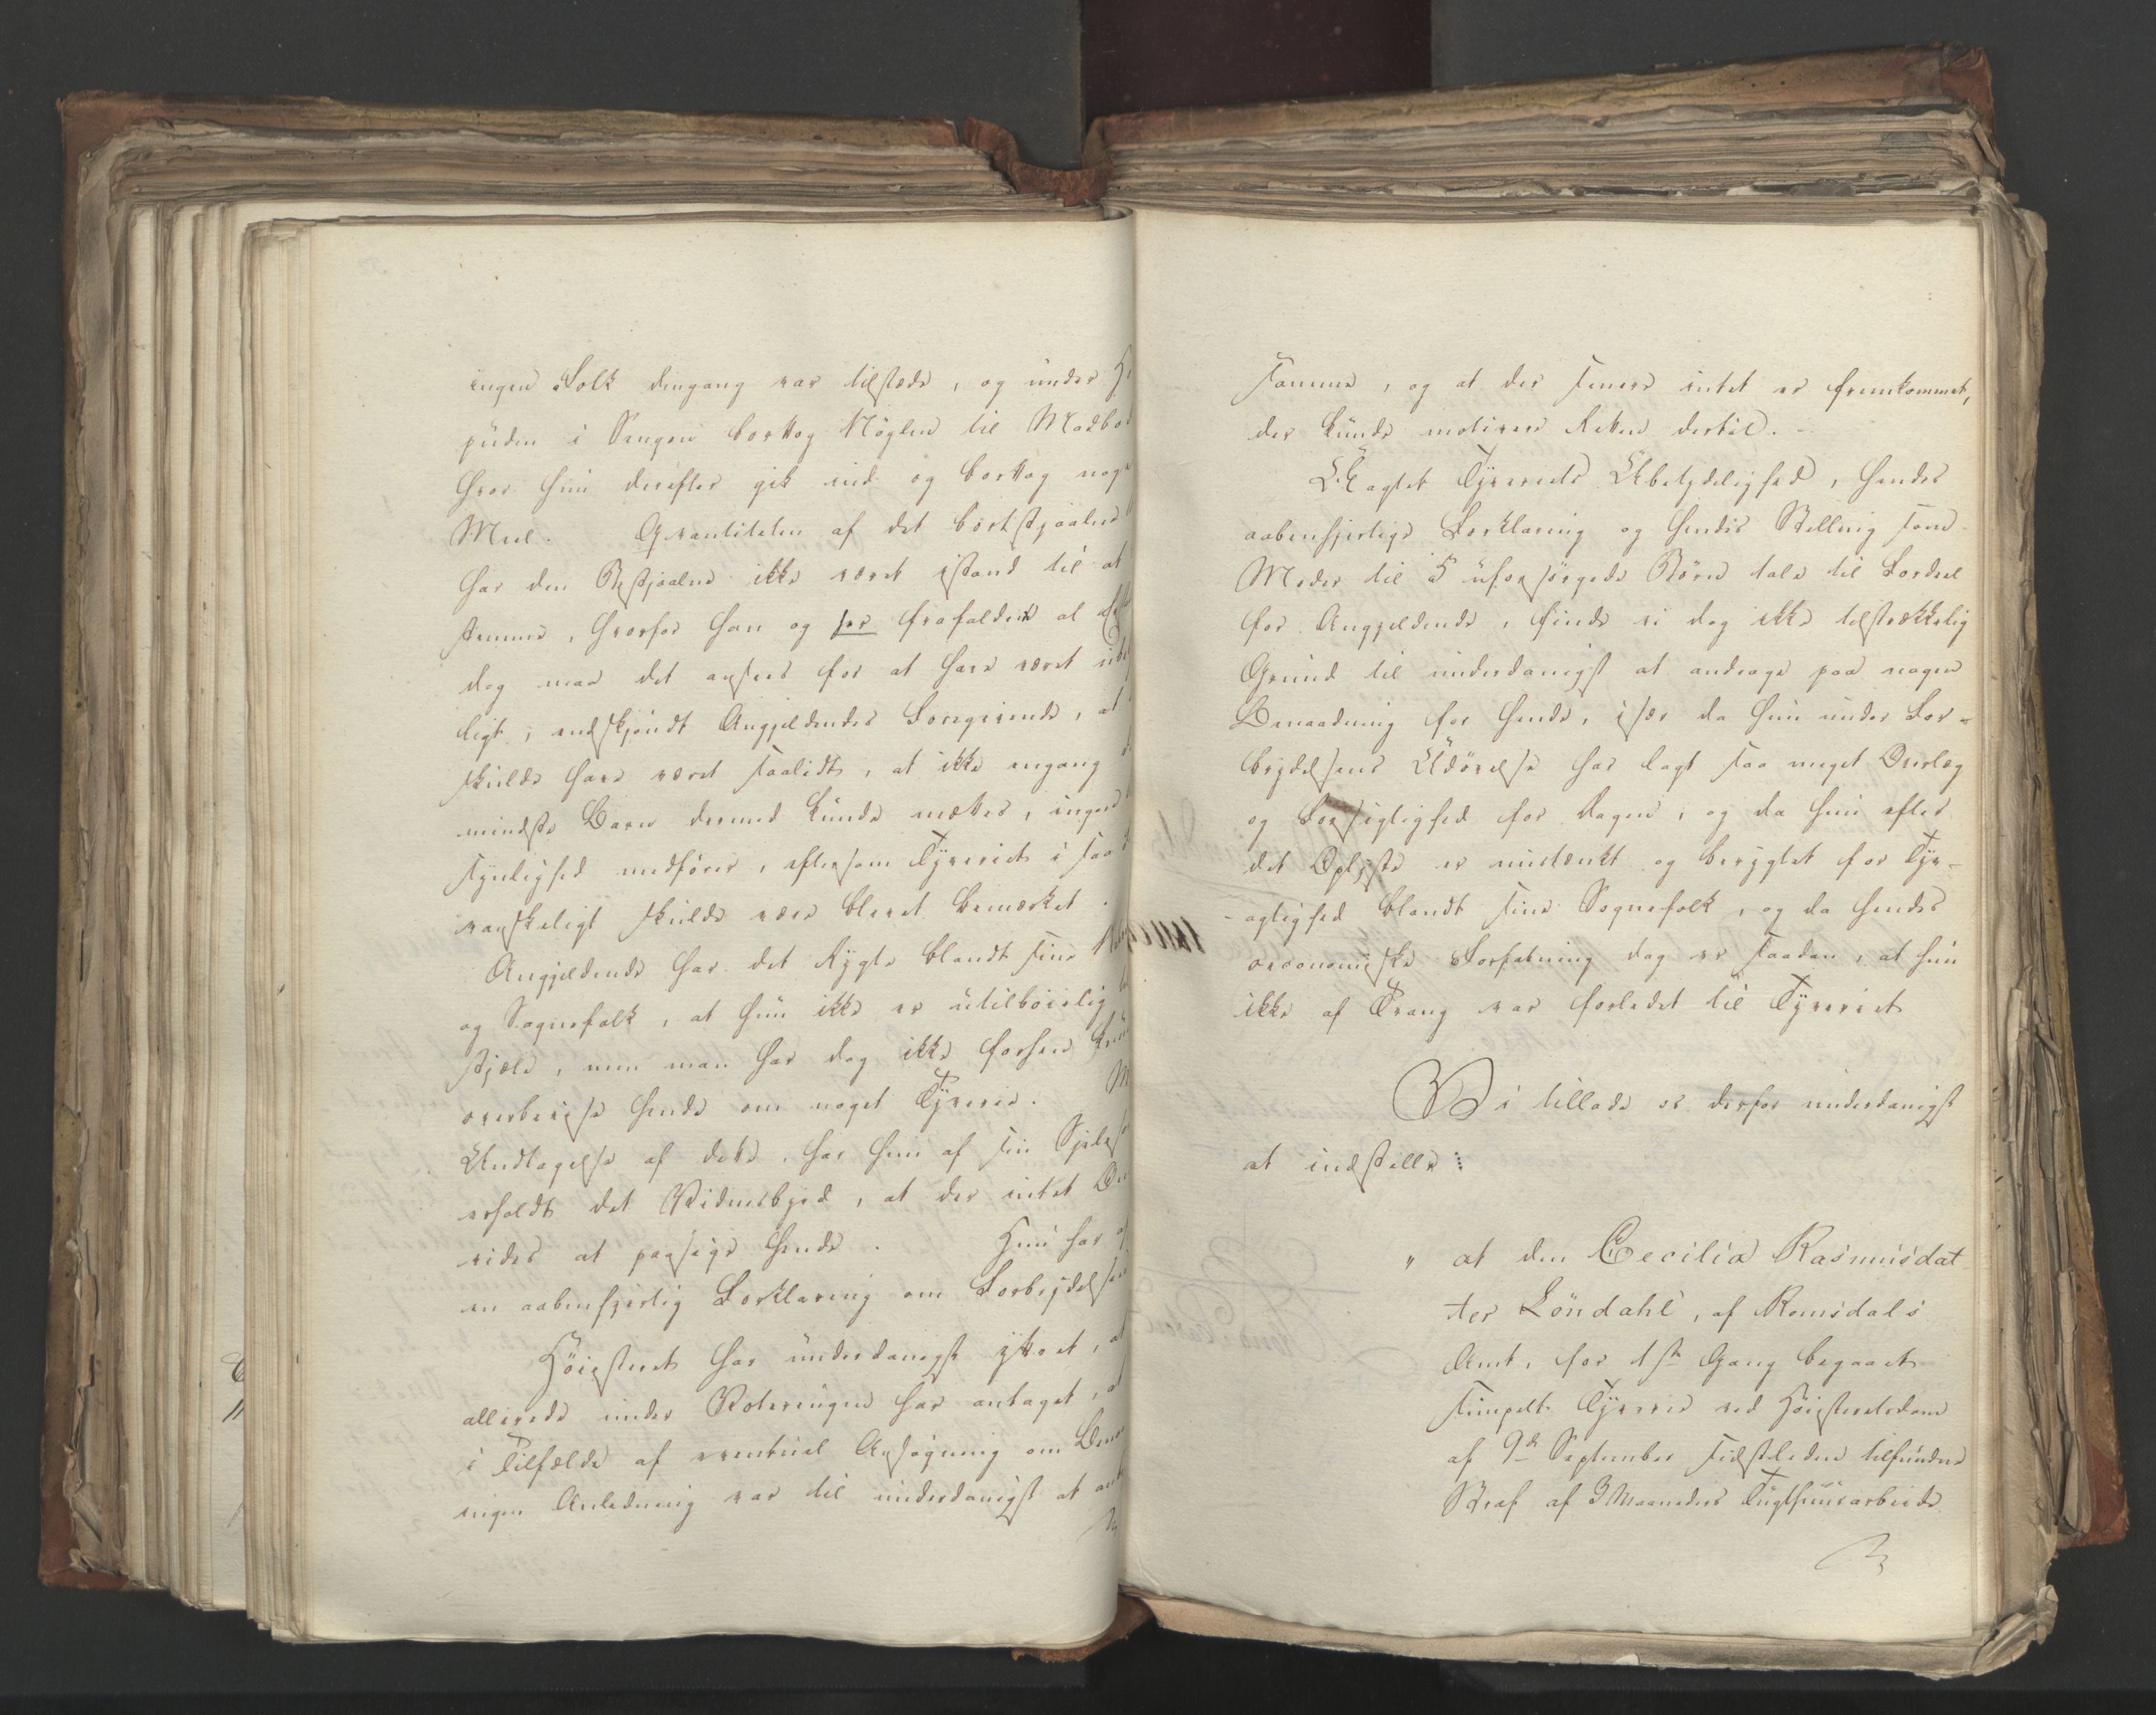 ingen Folk dengang var tilstæde, og under H
püden i Sengen borttog Nöglen til Madbo
hvor hun derefter gik ind og borttog nog
Meel. Qvantiteten af det bortstjaalne
har den Bestjaalne ikke været istand til at
stemme, hvorfor han og har frafaldet al
dog maa det ansees for at have været ube
ligt, endskjöndt Angjeldendes Foregivende, at
skulde have været saalidt, at ikke engang
mindste Barn dermed kunde mættes, ingen
synlighed medförer, eftersom Tyveriet i saa
vanskeligt skulde være blevet bemærket.
Angjeldende har det Rygte blandt sine
og Sognefolk, at hun ikke er utilböielig
stjæle, men man har dog ikke forhen
overbeviise hende om noget Tyverie. M
Undtagelse af dette, har hun af sin Sjele
erholdt det Vidnesbyrd, at der intet On
vides at paasige hende. Hun har
en aabenhjertig Forklaring om Forbrydelsen
Höiesteret har underdanigst yttret, at
allerede under Voteringen har antaget, at
i Tilfælde af eventuel Ansögning om Benaa
ingen Anledning var til underdanigst at an
samme, og at der senere intet er fremkommet,
der kunde motivere Retten dertil. -
Uagtet Tyveriets Ubetydelighed, hendes
aabenhjertige Forklaring og hendes Stilling som
Moder til 5 uforsörgede Börn tale til Fordeel
for Angjeldende, finde vi dog ikke tilstrækkelig
Grund til underdanigst at andrage paa nogen
Benaadning for hende, især da hun under For-
brydelsens Udövelse har lagt saa meget Overlæg
og Forsigtighed for Dagen, og da hun efter
det Oplyste er mistænkt og berygtet for Tyv-
agtighed blandt sine Sognefolk, og da hendes
oeconomiske Forfatning dog er saadan, at hun
ikke af Trang var forledet til Tyveriet
Vi tillade os derfor underdanigst
at indstille:
" at den Cecilia Rasmusdat
ter Löndahl, af Romsdals
Amt, for 1ste Gang begaaet
simpelt Tyverie ved Höiesteretsdom
af 9de September sidstleden tilfundne
Straf af 3 Maaneders Tugthuusarbeide